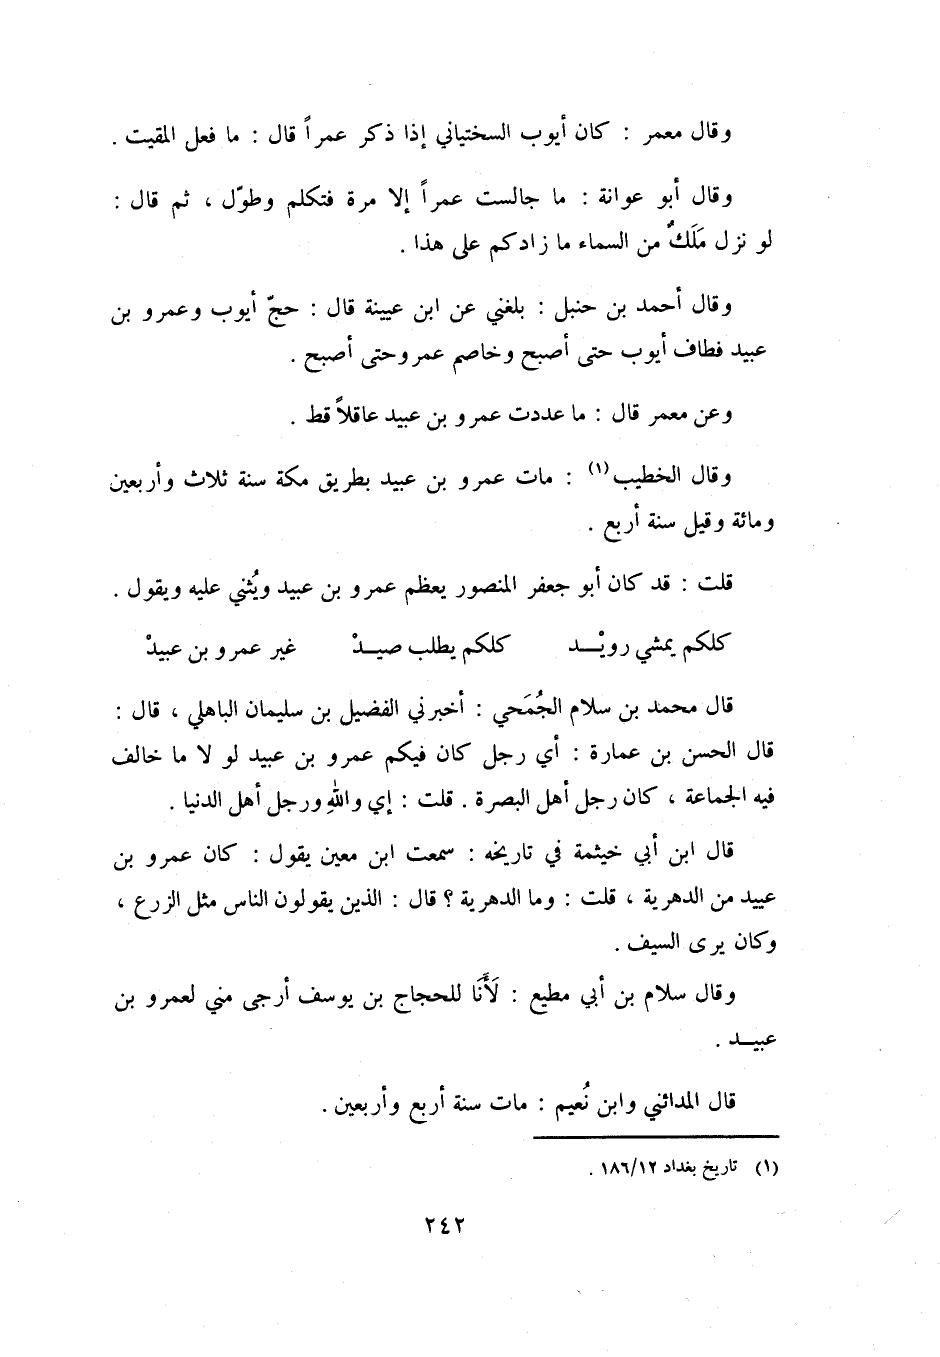 وقال معمر : كان أيوب السختياني إذا ذكر عمراً قال : ما فعل المقيت .
وقال أبو عوانة : ما جالست عمراً إلا مرة فتكلم وطوّل ، ثم قال :
لو نزل مَلَكٌ من السماء ما زادكم على هذا .
وقال أحمد بن حنبل : بلغني عن ابن عيينة قال : حجّ أيوب وعمرو بن
عبيد فطاف أيوب حتى أصبح وخاصم عمرو حتى أصبح .
وعن معمر قال : ما عددت عمرو بن عبيد عاقلاً قط .
وقال الخطيب (١) : مات عمرو بن عبيد بطريق مكة سنة ثلاث وأربعين
ومائة وقيل سنة أربع .
قلت : قد كان أبو جعفر المنصور يعظم عمرو بن عبيد ويُثني عليه ويقول .
كلكم يمشي رويْــد كلكم يطلب صيــدْ غير عمرو بن عبيدْ
قال محمد بن سلام الجُمَحي : أخبرني الفضيل بن سليمان الباهلي ، قال :
قال الحسن بن عمارة : أي رجل كان فيكم عمرو بن عبيد لو لا ما خالف
فيه الجماعة ، كان رجل أهل البصرة . قلت : إي واللهِ ورجل أهل الدنيا .
قال ابن أبي خيثمة في تاريخه : سمعت ابن معين يقول : كان عمرو بن
عبيد من الدهرية ، قلت : وما الدهرية ؟ قال : الذين يقولون الناس مثل الزرع ،
وكان يرى السيف .
وقال سلام بن أبي مطيع : لَأَنَا للحجاج بن يوسف أرجى مني لعمرو بن
عبيــد .
قال المدائني وابن نُعيم : مات سنة أربع وأربعين .
(١) تاريخ بغداد ١٨٦/١٢ .
٢٤٢